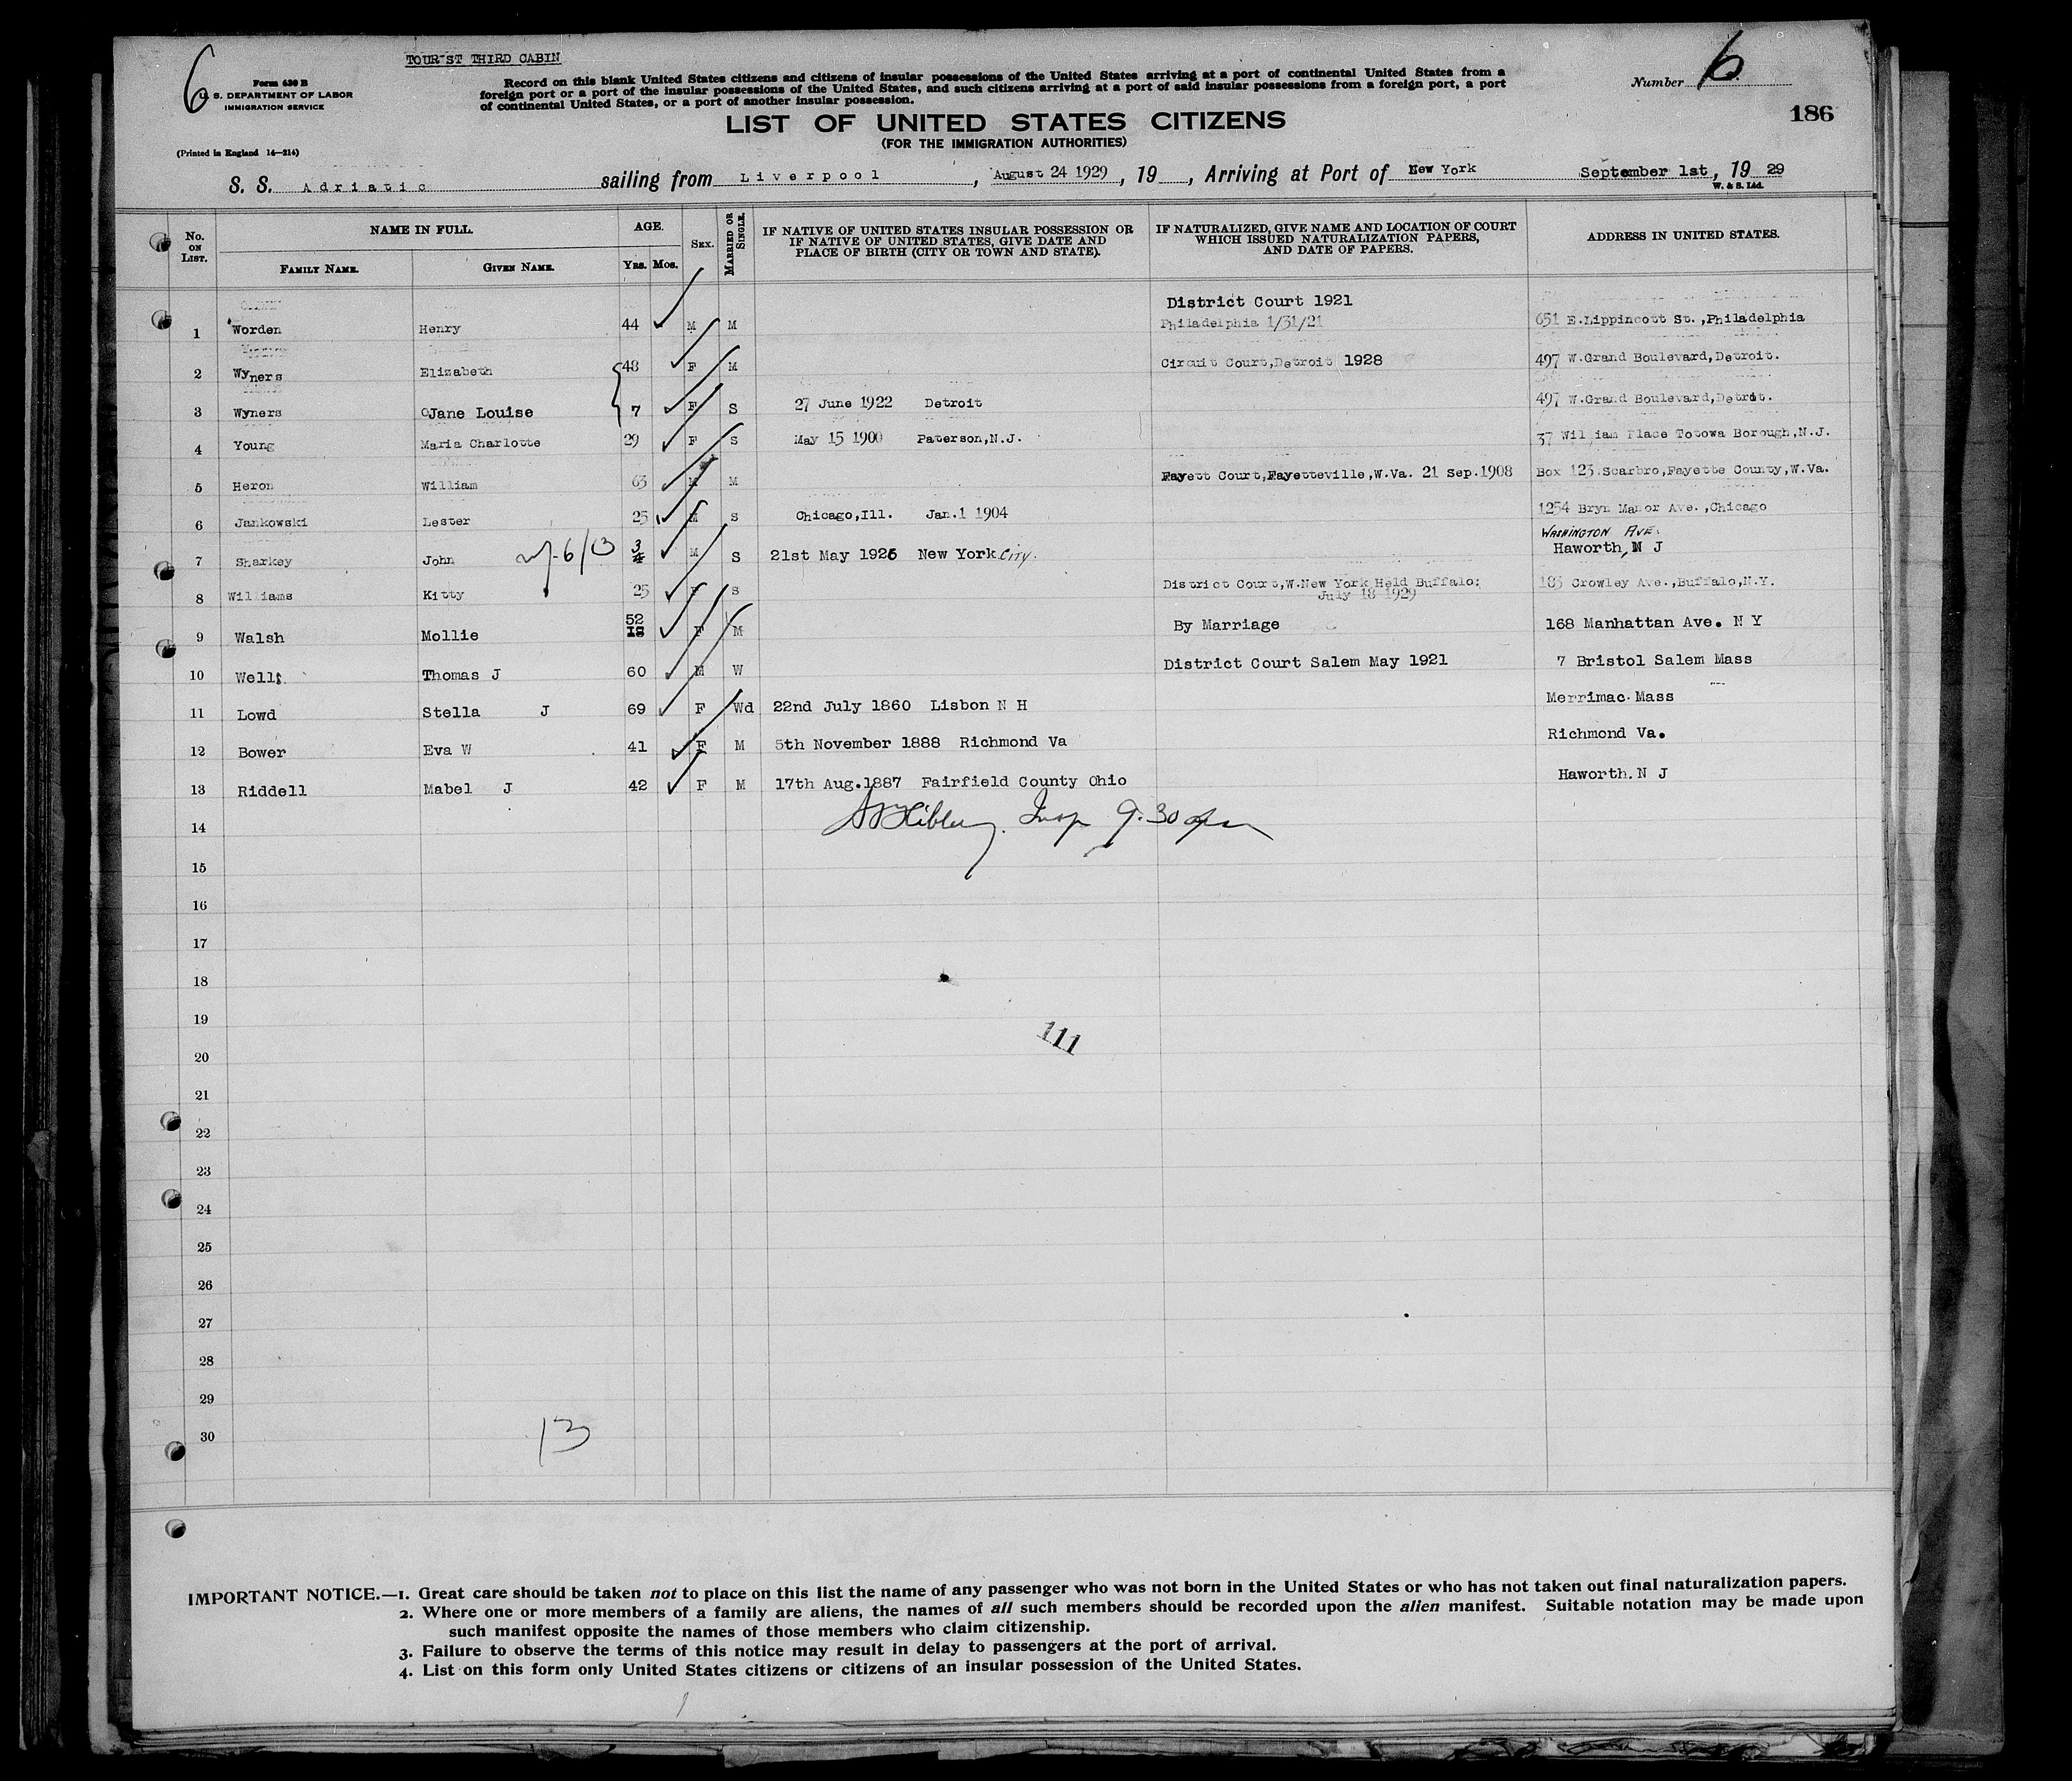 6
TOUR ST THIRD CABIN
Form 630 B
U. S. DEPARTMENT OF LABOR
IMMIGRATION SERVICE
(Printed in England 14—214)
Record on this blank United States citizens and citizens of insular possessions of the United States arriving at a port of continental United States from a
foreign port or a port of the insular possessions of the United States, and such citizens arriving at a port of said insular possessions from a foreign port, a port
of continental United States, or a port of another insular possession.
Number 6
186
LIST OF UNITED STATES CITIZENS
(FOR THE IMMIGRATION AUTHORITIES)
S. S. Adriatic sailing from Liverpool, August 24 1929, 19 , Arriving at Port of New York September 1st, 19 29
W. & S. Ltd.
No. ON LIST. NAME IN FULL. FAMILY NAME. GIVEN NAME. AGE. Yrs. Mos. SEX. MARRIED OR SINGLE. IF NATIVE OF UNITED STATES INSULAR POSSESSION OR IF NATIVE OF UNITED STATES, GIVE DATE AND PLACE OF BIRTH (CITY OR TOWN AND STATE). IF NATURALIZED, GIVE NAME AND LOCATION OF COURT WHICH ISSUED NATURALIZATION PAPERS, AND DATE OF PAPERS. ADDRESS IN UNITED STATES.
District Court 1921
1 Worden Henry 44 M M Philadelphia 1/31/21 651 E.Lippincott St.,Philadelphia
2 Wyners Elizabeth 48 F M Circuit Court,Detroit 1928 497 W.Grand Boulevard,Detroit.
3 Wyners Jane Louise 7 F S 27 June 1922 Detroit 497 W.Grand Boulevard,Detroit.
4 Young Maria Charlotte 29 F S May 15 1900 Paterson,N.J. 37 William Place Totowa Borough,N.J.
5 Heron William 63 M M Fayett Court,Fayetteville,W.Va. 21 Sep.1908 Box 123 Scarbro,Fayette County,W.Va.
6 Jankowski Lester 25 M S Chicago,Ill. Jan.1 1904 1254 Bryn Manor Ave.,Chicago
WASHINGTON AVE.
7 Sharkey John 6/13 3 4 M S 21st May 1926 New York City. Haworth, N J
8 Williams Kitty 25 F S District Court,W.New York Held Buffalo; July 18 1929 183 Crowley Ave.,Buffalo,N.Y.
9 Walsh Mollie 52 18 F M By Marriage 168 Manhattan Ave. N Y
10 Wells Thomas J 60 M W District Court Salem May 1921 7 Bristol Salem Mass
11 Lowd Stella J 69 F Wd 22nd July 1860 Lisbon N H Merrimac Mass
12 Bower Eva W 41 F M 5th November 1888 Richmond Va Richmond Va.
13 Riddell Mabel J 42 F M 17th Aug.1887 Fairfield County Ohio Haworth. N J
14 Insp 9.30 pm
15
16
17
18
19
111
20
21
22
23
24
25
26
27
28
29
30
13
IMPORTANT NOTICE.—1. Great care should be taken not to place on this list the name of any passenger who was not born in the United States or who has not taken out final naturalization papers.
2. Where one or more members of a family are aliens, the names of all such members should be recorded upon the alien manifest. Suitable notation may be made upon
such manifest opposite the names of those members who claim citizenship.
3. Failure to observe the terms of this notice may result in delay to passengers at the port of arrival.
4. List on this form only United States citizens or citizens of an insular possession of the United States.